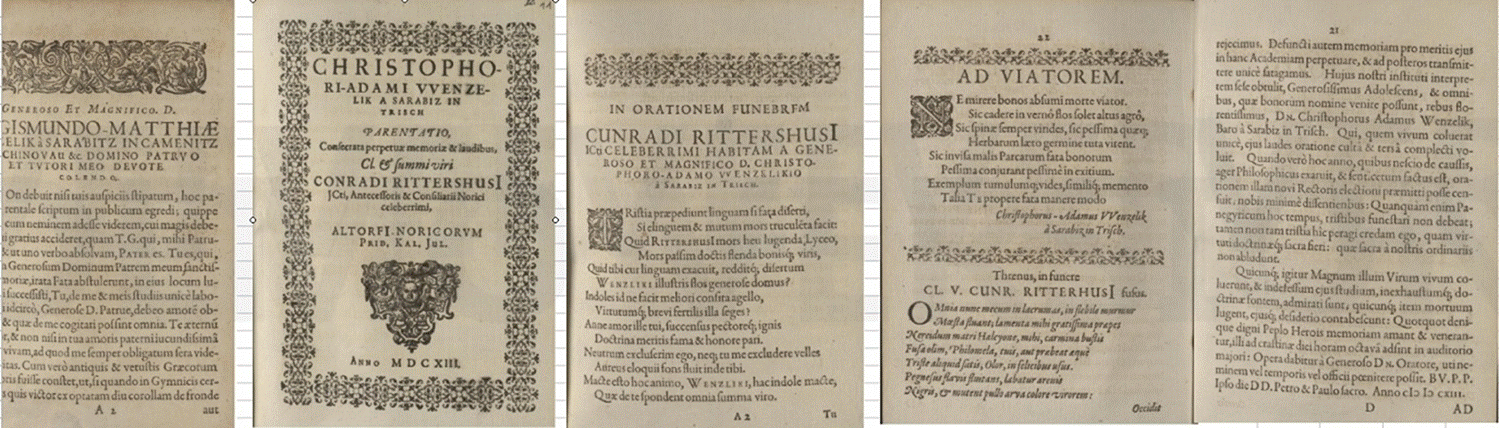 GENEROSO ET MAGNIFICO. D.
GISMUNDO-MATTHIÆ
ELIK à SARABITZ IN CAMENITZ
CHINOVAU &c DOMINO PATRVO
ET TVTORI MEO DEVOTE
COLENDO.
On debuit nisi tuis auspiciis stipatum, hoc pa-
rentale scriptum in publicum egredi; quippe
cum neminem adesse viderem, cui magis debe-
ii gratius accideret, quam T. G. qui, mihi Patru-
& ut uno verbo absolvam, PATER es. Tu es, qui,
a Generosum Dominum Patrem meum sanctis-
moriæ, irata Fata abstulerunt, in ejus locum lu-
i successisti, Tu, de me & meis studiis unicè labo-
idcircò, Generose D. Patrue, debeo amorẽ ob-
& quæ de me cogitari possint omnia. Te æternũ
e, & non nisi in tua amoris paterni jucundissimâ
vivam, ad quod me semper obligatum fera vide-
itas. Cum verò antiquis & vetustis Græcorum
tis fuisse constet, ut, si quando in Gymnicis cer-
s quis victor exoptatam diu corollam de fronde
A 2
aut
CHRISTOPHO-
RI-ADAMI VVENZE-
LIK A SARABIZ IN
TRISCH
PARENTATIO,
Consecrata perpetuæ memoriæ & laudibus,
Cl. & summi viri
CONRADI RITTERSHUSI
JCti, Antecessoris & Consiliarii Norici
celeberrimi,
ALTORFI-NORICORVM
PRID. KAL. JUL.
ANNO MDCXIII.
IN ORATIONEM FUNEBREM
CUNRADI RITTERSHUSI
ICti CELEBERRIMI HABITAM A GENE-
ROSO ET MAGNIFICO D. CHRISTO-
PHORO-ADAMO VVENZELIKIO
à SARABIZ IN TRISCH.
TRistia præpediunt linguam si fata diserti,
Si elinguem & mutum mors truculẽta facit:
Quid RITTERSHUSI mors heu lugenda, Lyceo,
Mors passim doctis flenda bonisq; viris,
Quid tibi cur linguam exacuit, redditq; disertum
WENZLIKI illustris flos generose domus?
Indoles id ne facit meliori consita agello,
Virtutumq; brevi fertilis illa seges?
Anne amor ille tui, succensus pectoreq; ignis
Doctrina meritis fama & honore pari.
Neutrum excluserim ego, neq; tu me excludere velles
Aureus eloquii fons fluit inde tibi.
Macte esto hoc animo, WENZLIKI, hac indole macte,
Quæ de te spondent omnia summa viro.
A 2
Tu
22
AD VIATOREM.
NE mirere bonos absumi morte viator.
Sic cadere in vernô flos solet altus agrô,
Sic spinæ semper virides, sic pessima quæq;
Herbarum læto germine tuta virent.
Sic invisa malis Parcarum fata bonorum
Pessima conjurant pessimè in exitium.
Exemplum tumulumq; vides, similiq; memento
Talia Te propere fata manere modo
Christophorus-Adamus VVenzelik
à Sarabiz in Trisch.
Threnus, in funere
CL. V. CUNR. RITTERHUSI fusus.
OMnia nunc mecum in lacrumas, in flebile murmur
Mœsta fluant; lamenta mihi gratissima præpes
Nereidum matri Halcyone, mihi, carmina bustis
Fusa olim, Philomela, tuis, aut præbeat æquè
Triste aliquid satis, Olor, in felicibus usus.
Pegnesus flavis fluitans, labatur arenis
Nigris, & mutent pullo arva colore virorem:
Occidit
21
rejecimus. Defuncti autem memoriam pro meritis ejus
in hanc Academiam perpetuare, & ad posteros transmit-
tere unicè satagamus. Hujus nostri instituti interpre-
tem sese obtulit, Generosissimus Adolescens, & omni-
bus, quæ bonorum nomine venire possunt, rebus flo-
rentissimus, Dn. Christophorus Adamus Wenzelik,
Baro à Sarabiz in Trisch. Qui, quem vivum coluerat
unicè, ejus laudes oratione cultâ & tersâ complecti vo-
luit. Quando verò hoc anno, quibus nescio de caussis,
ager Philosophicus exaruit, & senticetum factus est, ora-
tionem illam novi Rectoris electioni præmitti posse cen-
suit, nobis minimè dissentientibus: Quanquam enim Pa-
negyricum hoc tempus, tristibus funestari non debeat;
tamen non tam tristia hic peragi credam ego, quam vir-
tuti doctrinæq; sacra fieri: quæ sacra à nostris ordinariis
non abludunt.
Quicunq; igitur Magnum illum Virum vivum co-
luerunt, & indefessum ejus studium, inexhaustumq; do-
ctrinæ fontem, admirati sunt, quicunq; item mortuum
lugent, ejusq; desiderio contabescunt: Quotquot deni-
que digni Peplo Herois memoriam amant & veneran-
tur, illi ad crastinæ diei horam octavã adsint in auditorio
majori: Opera dabitur à Generoso Dn. Oratore, uti ne-
minem vel temporis vel officii pœnitere possit. B V. P. P.
Ipso die D D. Petro & Paulo sacro. Anno cIɔ Iɔ cXIII.
D
AD